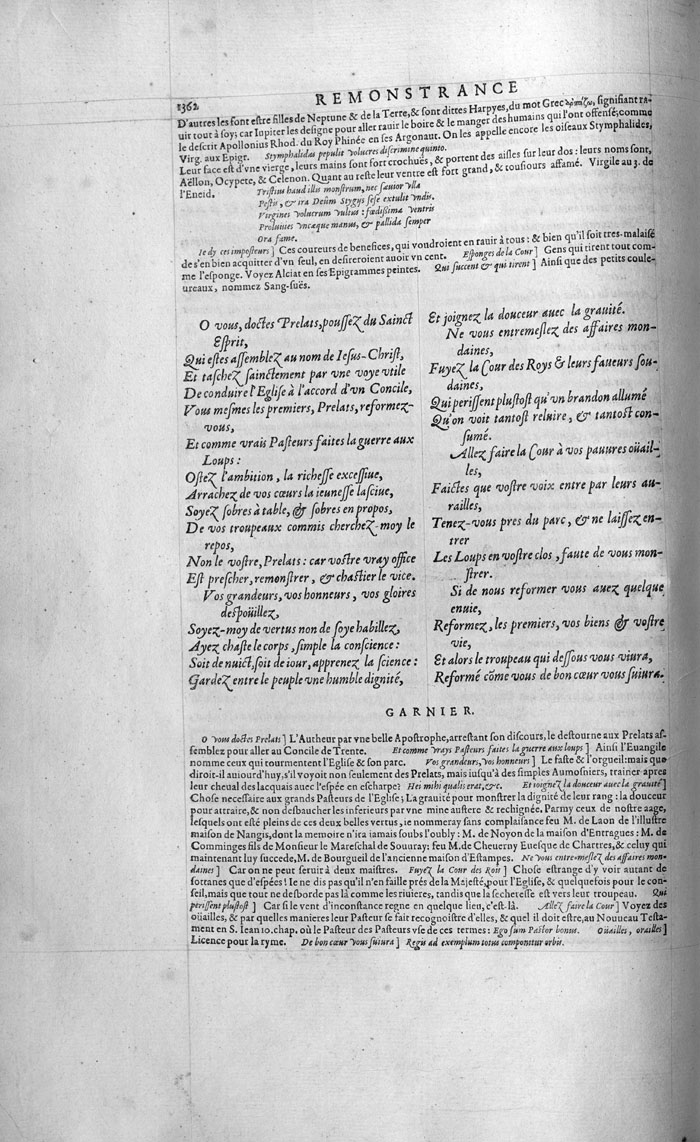 1362
REMONSTRANCE
D'autres les font estre filles de Neptune & de la Terre, & sont dittes Harpyes, du mot Grec ἁρπάζω, signifiant ra-
uit tout à soy; car Iupiter les designe pour aller rauir le boire & le manger des humains qui l'ont offensé; comme
le descrit Apollonius Rhod. du Roy Phinée en ses Argonaut. On les appelle encore les oiseaux Stymphalides,
Virg. aux Epigr. Stymphalidas pepulit volucres discrimine quinto.
Leur face est d'vne vierge, leurs mains sont fort crochuës, & portent des aisles sur leur dos: leurs noms sont,
Aëllon, Ocypete, & Celenon. Quant au reste leur ventre est fort grand, & tousiours affamé. Virgile au 3. de
l'Eneid. Tristius haud illis monstrum, nec sæuior vlla
Pestis, & ira Deûm Stygiis sese extulit vndis.
Virgines volucrum vultus: fœdissima ventris
Proluuies vncaque manus, & pallida semper
Ora fame.
Ie dy ces imposteurs] Ces coureurs de benefices, qui voudroient en rauir à tous: & bien qu'il soit tres-malaisé
de s'en bien acquitter d'vn seul, en desireroient auoir vn cent. Esponges de la Cour] Gens qui tirent tout com-
me l'esponge. Voyez Alciat en ses Epigrammes peintes. Qui succent & qui tirent] Ainsi que des petits coule-
ureaux, nommez Sang-suës.
O vous, doctes Prelats, poussez du Sainct
Esprit,
Qui estes assemblez au nom de Iesus-Christ,
Et taschez sainctement par vne voye vtile
De conduire l'Eglise à l'accord d'vn Concile,
Vous mesmes les premiers, Prelats, reformez-
vous,
Et comme vrais Pasteurs faites la guerre aux
Loups:
Ostez l'ambition, la richesse excessiue,
Arrachez de vos cœurs la ieunesse lasciue,
Soyez sobres à table, & sobres en propos,
De vos troupeaux commis cherchez-moy le
repos,
Non le vostre, Prelats: car vostre vray office
Est prescher, remonstrer, & chastier le vice.
Vos grandeurs, vos honneurs, vos gloires
despoüillez,
Soyez-moy de vertus non de soye habillez,
Ayez chaste le corps, simple la conscience:
Soit de nuict, soit de iour, apprenez la science:
Gardez entre le peuple vne humble dignité,
Et joignez la douceur auec la grauité.
Ne vous entremeslez des affaires mon-
daines,
Fuyez la Cour des Roys & leurs faueurs sou-
daines,
Qui perissent plustost qu'vn brandon allumé
Qu'on voit tantost reluire, & tantost con-
sumé.
Allez faire la Cour à vos pauures oüail-
les,
Faictes que vostre voix entre par leurs au-
railles,
Tenez-vous pres du parc, & ne laissez en-
trer
Les Loups en vostre clos, faute de vous mon-
strer.
Si de nous reformer vous auez quelque
enuie,
Reformez, les premiers, vos biens & vostre
vie,
Et alors le troupeau qui dessous vous viura,
Reformé cõme vous de bon cœur vous suiura.
GARNIER.
O vous doctes Prelats] L'Autheur par vne belle Apostrophe, arrestant son discours, le destourne aux Prelats as-
semblez pour aller au Concile de Trente. Et comme vrays Pasteurs faites la guerre aux loups] Ainsi l'Euangile
nomme ceux qui tourmentent l'Eglise & son parc. Vos grandeurs, vos honneurs] Le faste & l'orgueil: mais que
diroit-il auiourd'huy, s'il voyoit non seulement des Prelats, mais iusqu'à des simples Aumosniers, trainer apres
leur cheual des lacquais auec l'espée en escharpe? Hei mihi qualis erat, &c. Et ioignez la douceur auec la grauité]
Chose necessaire aux grands Pasteurs de l'Eglise; La grauité pour monstrer la dignité de leur rang: la douceur
pour attraire, & non desbaucher les inferieurs par vne mine austere & rechignée. Parmy ceux de nostre aage,
lesquels ont esté pleins de ces deux belles vertus, ie nommeray sans complaisance feu M. de Laon de l'illustre
maison de Nangis, dont la memoire n'ira iamais soubs l'oubly: M. de Noyon de la maison d'Entragues: M. de
Comminges fils de Monsieur le Mareschal de Souuray: feu M. de Cheuerny Euesque de Chartres, & celuy qui
maintenant luy succede, M. de Bourgueil de l'ancienne maison d'Estampes. Ne vous entre-meslez des affaires mon-
daines] Car on ne peut seruir à deux maistres. Fuyez la Cour des Rois] Chose estrange d'y voir autant de
sottanes que d'espées! Ie ne dis pas qu'il n'en faille prés de la Majesté, pour l'Eglise, & quelquefois pour le con-
seil, mais que tout ne desborde pas là comme les riuieres, tandis que la secheresse est vers leur troupeau. Qui
perissent plustost] Car si le vent d'inconstance regne en quelque lieu, c'est là. Allez faire la Cour] Voyez des
oüailles, & par quelles manieres leur Pasteur se fait recognoistre d'elles, & quel il doit estre, au Nouueau Testa-
ment en S. Iean 10. chap. où le Pasteur des Pasteurs vse de ces termes: Ego sum Pastor bonus. Oüailles, orailles]
Licence pour la ryme. De bon cœur vous suiura] Regis ad exemplum totus componitur orbis.